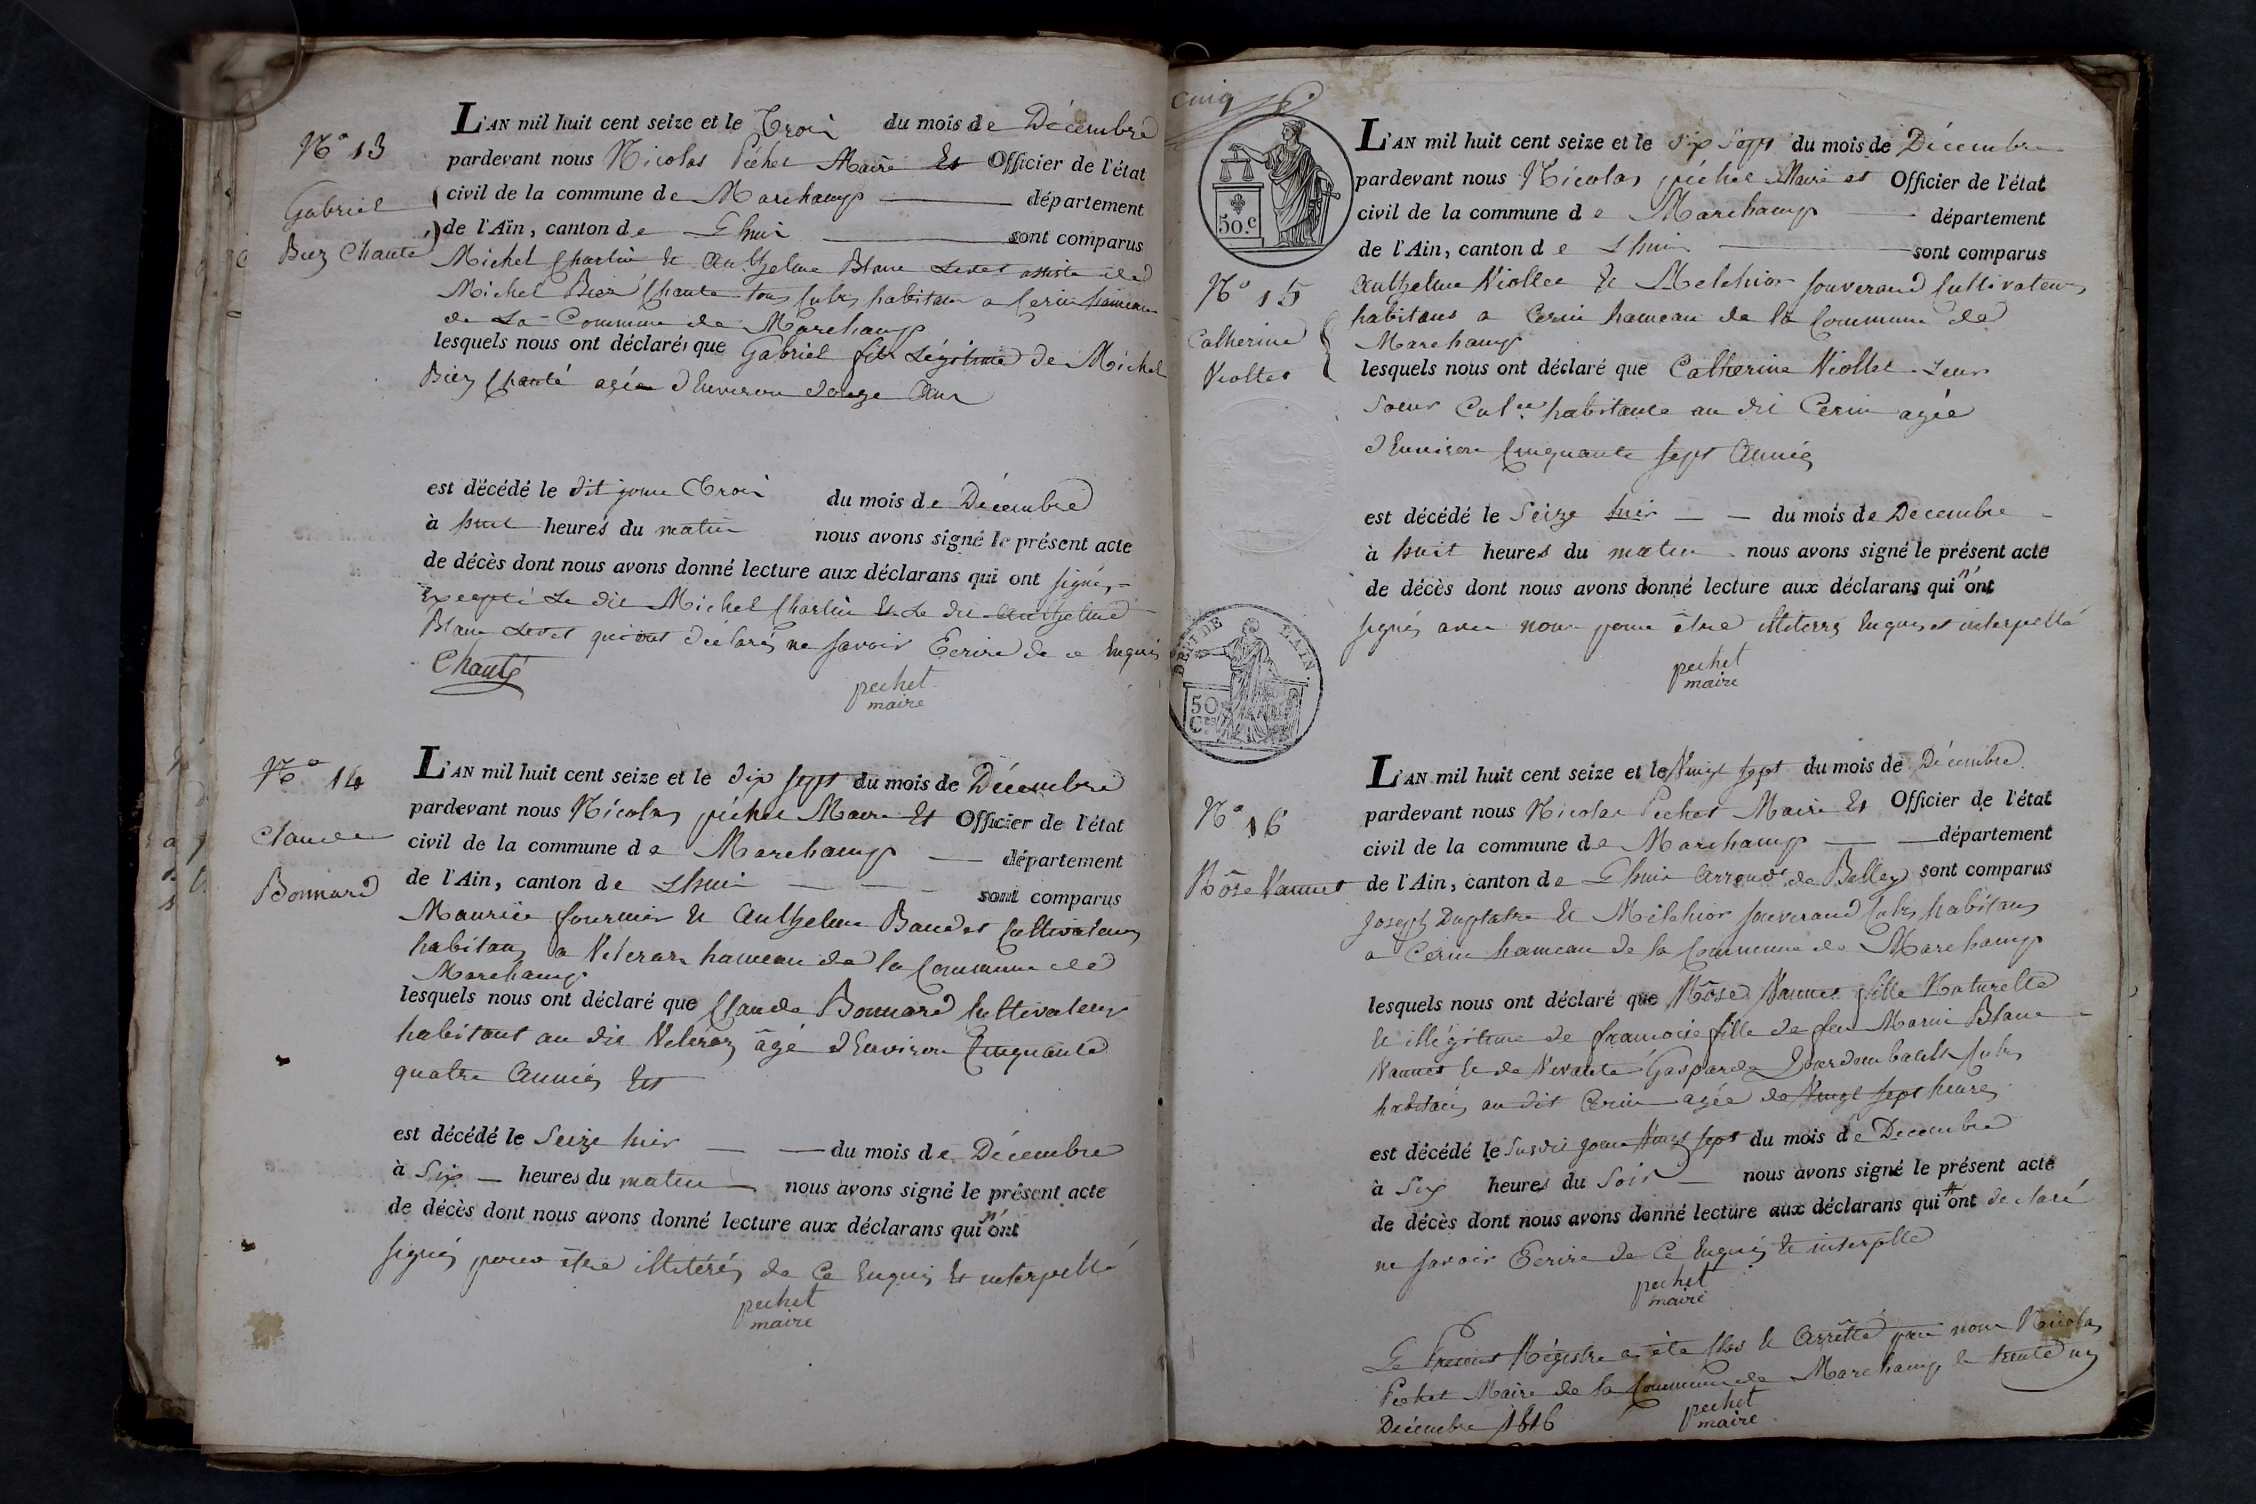 N.º 13
Gabriel
Biez Chanté
L'AN mil huit cent seize et le Trois du mois de Décembre
pardevant nous Nicolas Péchet Maire Et Officier de l'état
civil de la commune de Marchamp département
de l'Ain, canton de Lhuis sont comparus
Michel Charlin Et Anthelme Blanc
Michel Biez Chanté tous habitans a Cerin hameau
de La Commune de Marchamp
lesquels nous ont déclarés que Gabriel fils Légitime de Michel
Biez Chanté agée d'Environ douze Ans
est décédé le dit jour Trois du mois de Décembre
à huit heures du matin nous avons signé le présent acte
de décès dont nous avons donné lecture aux déclarans qui ont signés
Excepté Le dit Michel Charlin Et Le dit Anthelme
Blanc qui ont déclarés ne savoir Ecrire de ce Enquis
Chanté
pechet
maire
N.º 14
Claude
Bonnard
L'AN mil huit cent seize et le dix sept du mois de Décembre
pardevant nous Nicolas péchet Maire Et Officier de l'état
civil de la commune de Marchamp département
de l'Ain, canton de Lhuis sont comparus
Maurice fournier Et Anthelme Baudet Cultivateurs
habitans a hameau de la Commune de
Marchamp
lesquels nous ont déclaré que Claude Bonnard Cultivateur
habitant au dit âgé d'Environ Cinquante
quatre Années Est
est décédé le Seize hier du mois de Décembre
à Six heures du matin nous avons signé le présent acte
de décès dont nous avons donné lecture aux déclarans qui n'ont
signés pour être illitérés de Ce Enquis Et interpellé
pechet
maire
cinq
50.c
DEP. DE L'AIN.
50
C.es
N.º 15
Catherine
Viollet
L'AN mil huit cent seize et le dix Sept du mois de Décembre
pardevant nous Nicolas péchet Maire et Officier de l'état
civil de la commune de Marchamp département
de l'Ain, canton de Lhuis sont comparus
Anthelme Viollet Et Melchior souverand Cultivateurs
habitans a Cerin hameau de la Commune de
Marchamp
lesquels nous ont déclaré que Catherine Viollet Leur
Soeur habitante au dit Cerin agée
d'Environ Cinquante sept Années
est décédé le Seize hier du mois de Decembre
à huit heures du matin nous avons signé le présent acte
de décès dont nous avons donné lecture aux déclarans qui n'ont
signés avec nous pour être illiterés Enquis et interpellé
pechet
maire
N.º 16
Rôse Vannet
L'AN mil huit cent seize et le Vingt sept du mois de Décembre
pardevant nous Nicolas Pechet Maire Et Officier de l'état
civil de la commune de Marchamp département
de l'Ain, canton de Lhuis Arrond.t de Belley sont comparus
Joseph Duplatre Et Melchior souverand habitans
a Cerin hameau de la Commune de Marchamp
lesquels nous ont déclaré que Rôse Vannet fille Naturelle
Et illégitime de francoise fille de feu Blanc
Vannet Et de Vivante Gasparde
habitans au dit Cerin agée de Vingt sept heures
est décédé le susdit jour Vingt sept du mois de Decembre
à Six heures du Soir nous avons signé le présent acte
de décès dont nous avons donné lecture aux déclarans qui ont declaré
ne savoir Ecrire de Ce Enquis Et interpellé
pechet
maire
Le Présent Régistre a été Clos Et Arrêtté par nous Nicolas
Péchet Maire de la Commune de Marchamp le trente un
Décembre 1816
pechet
maire